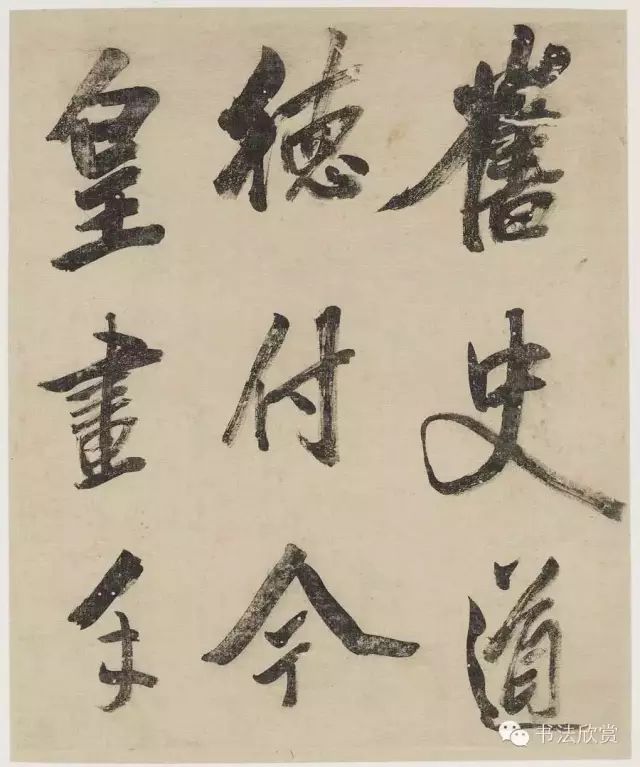 舊史道
德付今
皇畫
书法欣赏